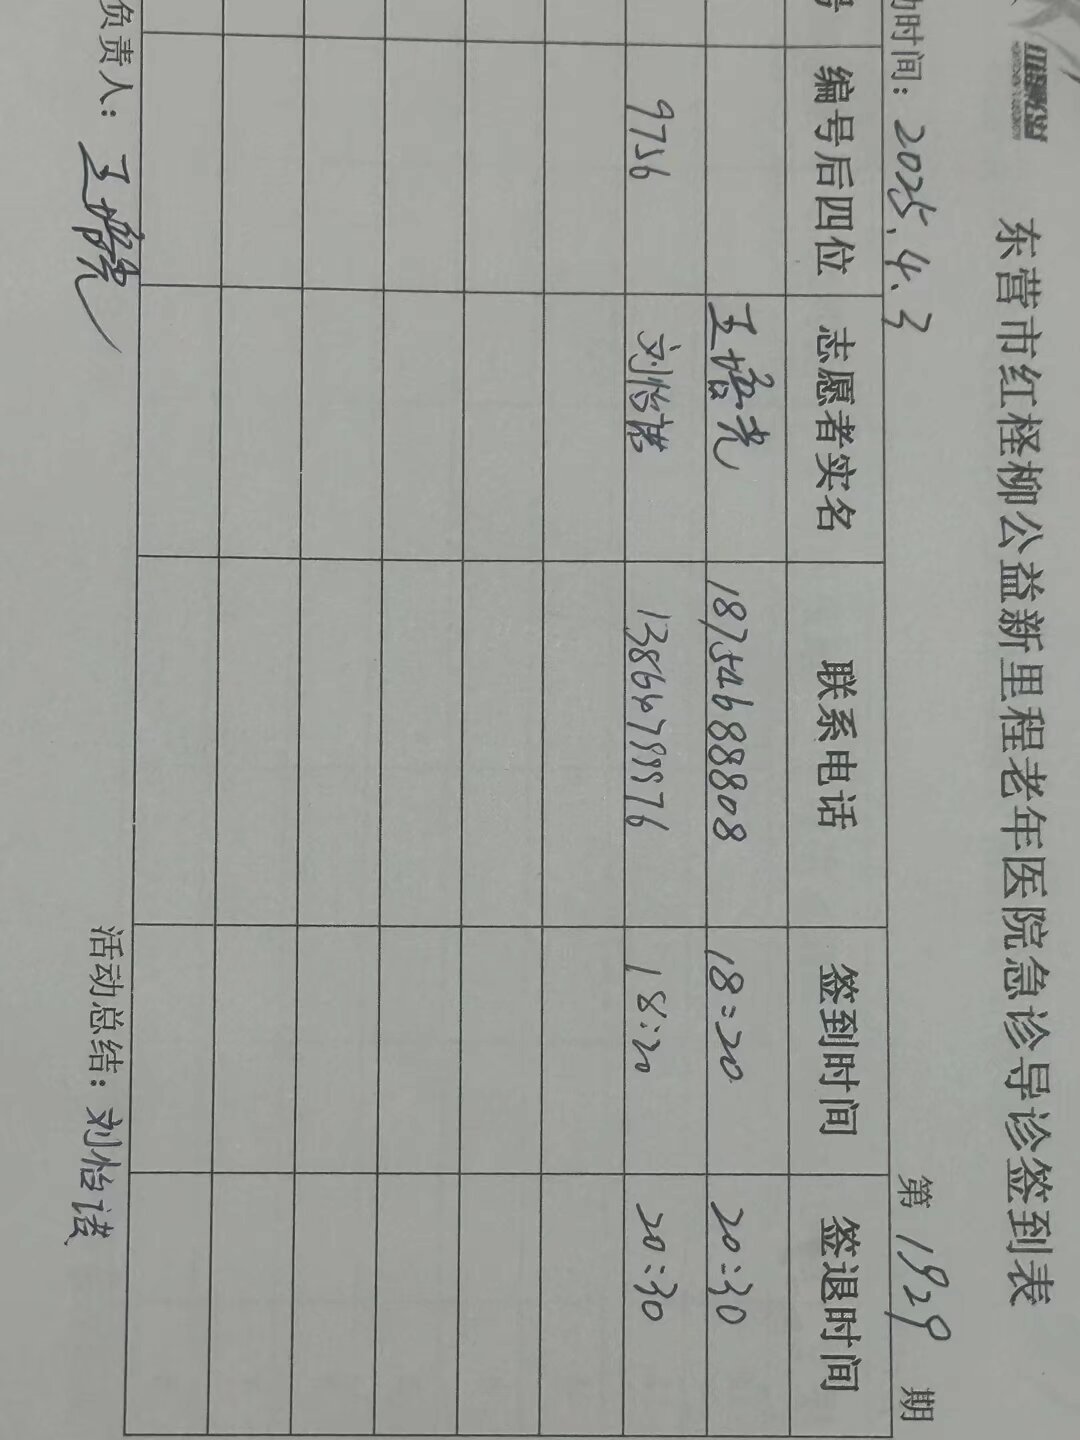 东营市红柽柳公益新里程老年医院急诊导诊签到表
动时间：2025.4.3 第1929期
号 编号后四位 志愿者实名 联系电话 签到时间 签退时间
王培尧 18754688808 18:20 20:30
9756 刘怡诺 13864799976 18:20 20:30
负责人：王培尧 活动总结：刘怡诺